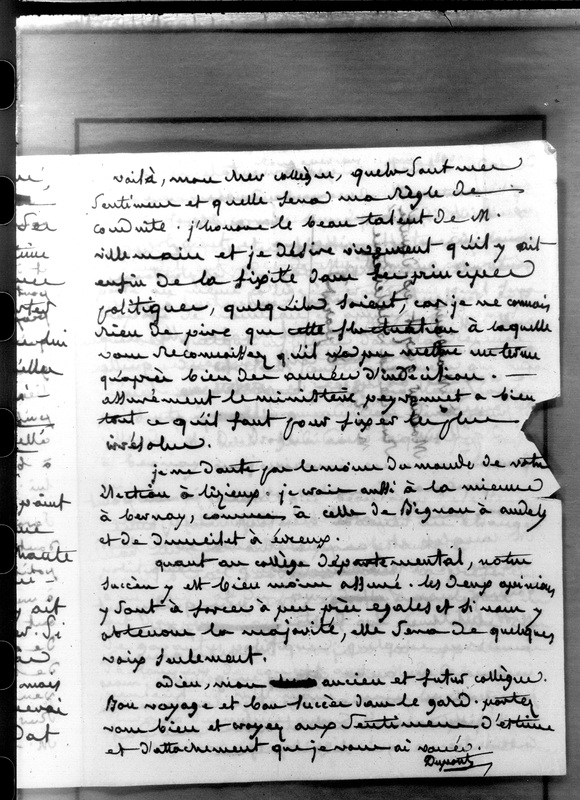 voilà, mon cher collègue, quels sont mes
sentimens et quelle sera ma règle de
conduite. j'honore le beau talent de M.
villemain et je désire vivement qu'il y ait
enfin de la fixité dans ses principes
politiques, quelqu'ils soient, car je ne connais
rien de pire que cette fluctuation à laquelle
vous reconnaissez qu'il n'a pu mettre un terme
qu'après bien des années d'indécision. —
assurément le ministère peyronnet a bien
tout ce qu'il faut pour fixer les plus
irrésolus.
je ne doute pas le moins du monde de votre
élection à lizieux. je crois aussi à la mienne
à bernay, comme à celle de Bignon à andelys
et de dumeilet à évreux.
quant au collège départemental, notre
succès y est bien moins assuré. les deux opinions
y sont à forces à peu près egales et si nous y
obtenons la majorité, elle sera de quelques
voix seulement.
adieu, mon ancien et futur collègue.
Bon voyage et bon succès dans le gard. portez
vous bien et croyez aux sentimens d'estime
et d'attachement que je vous ai voués.
Dupont
ait
mais